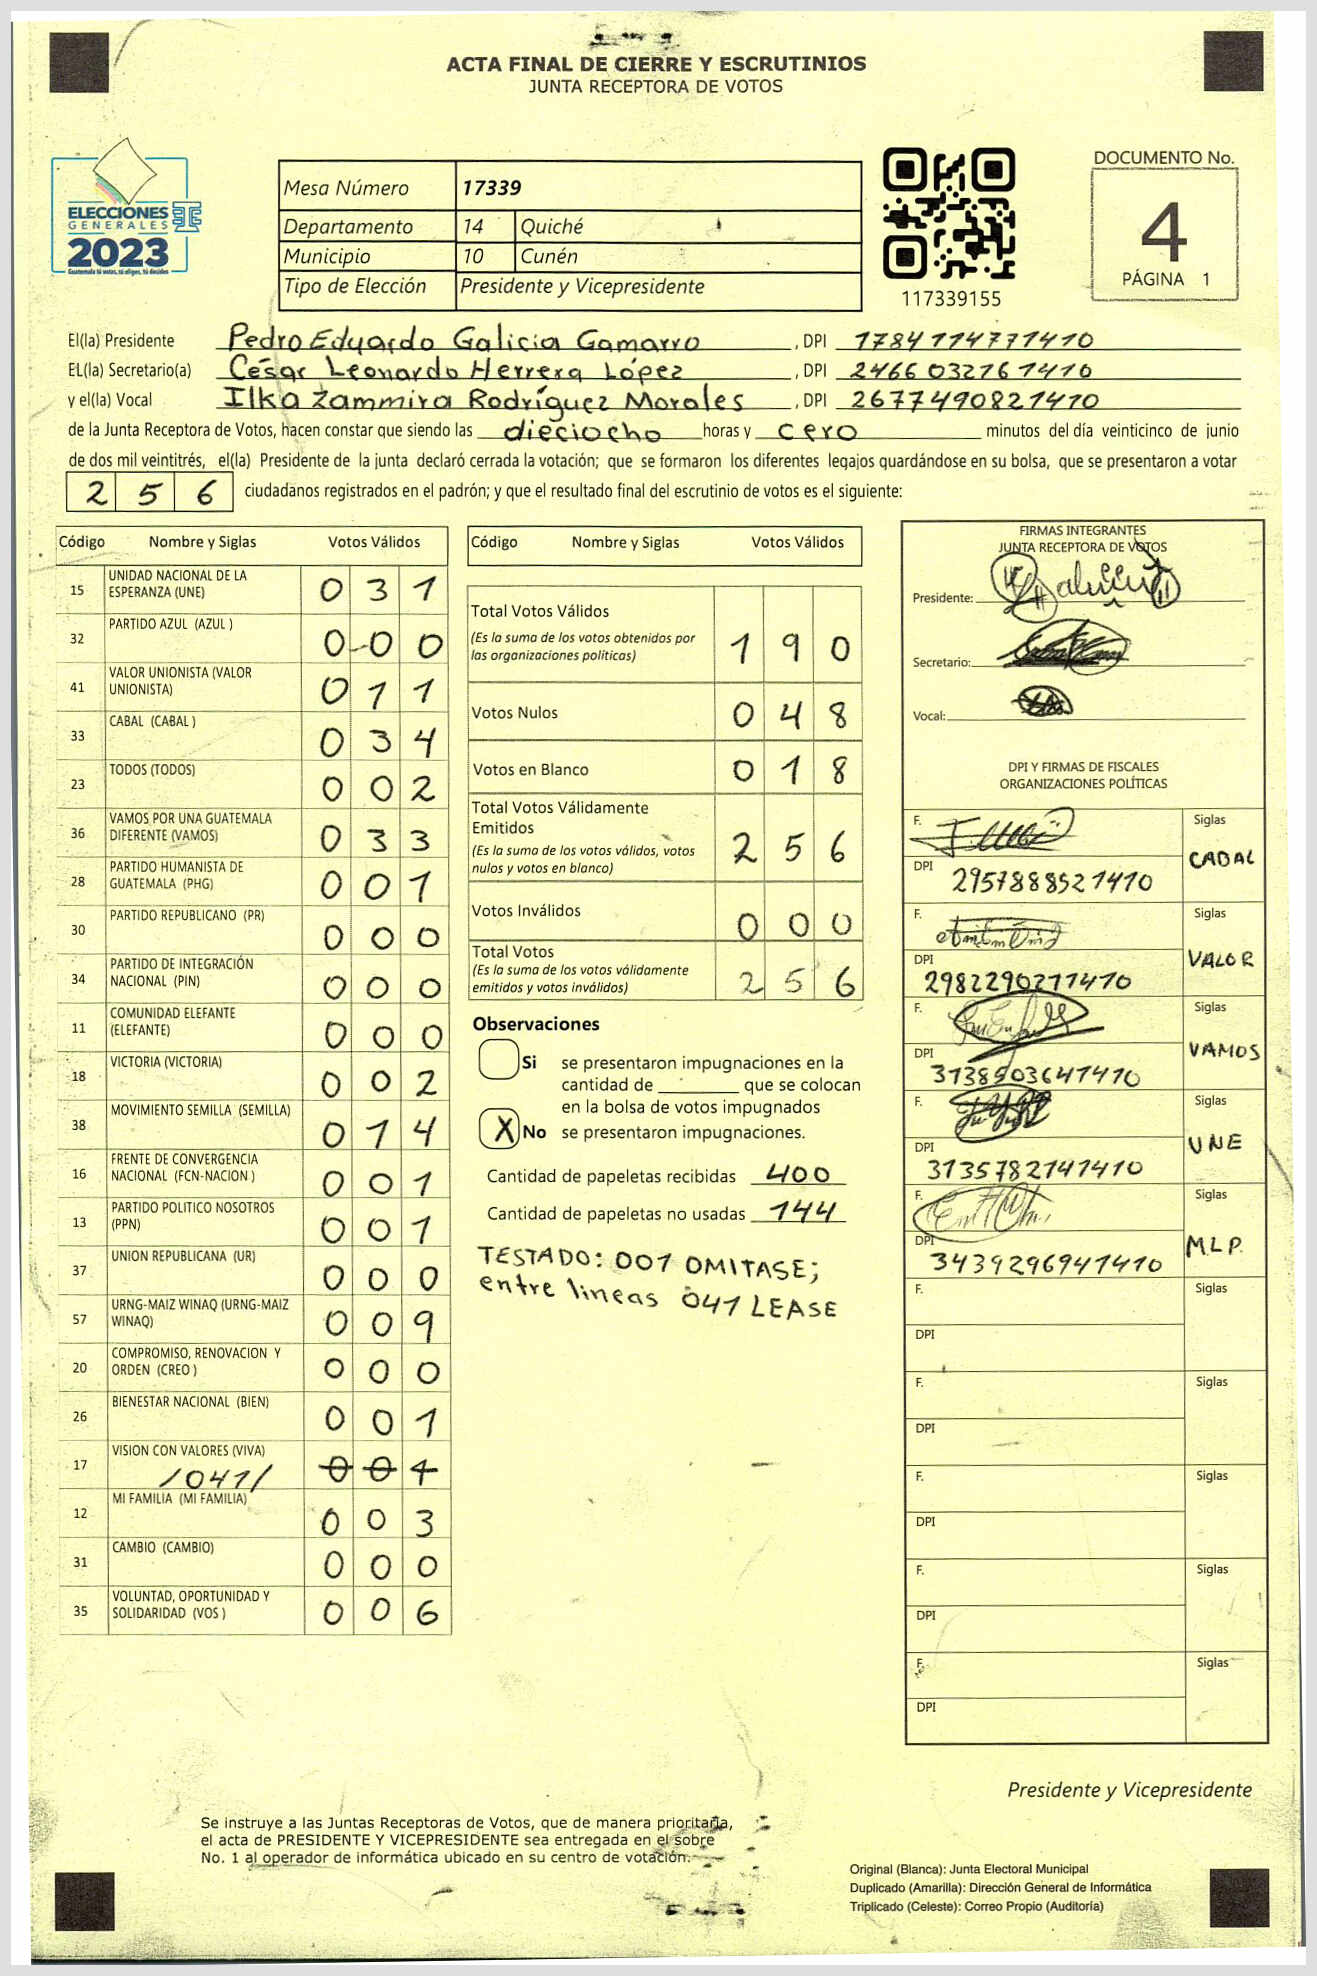 ACTA FINAL DE CIERRE Y ESCRUTINIOS
JUNTA RECEPTORA DE VOTOS
ELECCIONES
GENERALES
2023
Guatemala tú votas, tú eliges, tú decides
Mesa Número 17339
Departamento 14 Quiché
Municipio 10 Cunén
Tipo de Elección Presidente y Vicepresidente
117339155
DOCUMENTO No.
4
PÁGINA 1
El(la) Presidente Pedro Eduardo Galicia Gamarro, DPI 1784114771410
EL(la) Secretario(a) César Leonardo Herrera López, DPI 2466032761410
y el(la) Vocal Ilka Zammira Rodríguez Morales, DPI 2677490821410
de la Junta Receptora de Votos, hacen constar que siendo las dieciocho horas y cero minutos del día veinticinco de junio
de dos mil veintitrés, el(la) Presidente de la junta declaró cerrada la votación; que se formaron los diferentes legajos quardándose en su bolsa, que se presentaron a votar
2 5 6 ciudadanos registrados en el padrón; y que el resultado final del escrutinio de votos es el siguiente:
Código Nombre y Siglas Votos Válidos
15 UNIDAD NACIONAL DE LA ESPERANZA (UNE) 0 3 1
32 PARTIDO AZUL (AZUL ) 0 0 0
41 VALOR UNIONISTA (VALOR UNIONISTA) 0 1 1
33 CABAL (CABAL ) 0 3 4
23 TODOS (TODOS) 0 0 2
36 VAMOS POR UNA GUATEMALA DIFERENTE (VAMOS) 0 3 3
28 PARTIDO HUMANISTA DE GUATEMALA (PHG) 0 0 1
30 PARTIDO REPUBLICANO (PR) 0 0 0
34 PARTIDO DE INTEGRACIÓN NACIONAL (PIN) 0 0 0
11 COMUNIDAD ELEFANTE (ELEFANTE) 0 0 0
18 VICTORIA (VICTORIA) 0 0 2
38 MOVIMIENTO SEMILLA (SEMILLA) 0 1 4
16 FRENTE DE CONVERGENCIA NACIONAL (FCN-NACION ) 0 0 1
13 PARTIDO POLITICO NOSOTROS (PPN) 0 0 1
37 UNION REPUBLICANA (UR) 0 0 0
57 URNG-MAIZ WINAQ (URNG-MAIZ WINAQ) 0 0 9
20 COMPROMISO, RENOVACION Y ORDEN (CREO ) 0 0 0
26 BIENESTAR NACIONAL (BIEN) 0 0 1
17 VISION CON VALORES (VIVA) /041/ 0 0 1
12 MI FAMILIA (MI FAMILIA) 0 0 3
31 CAMBIO (CAMBIO) 0 0 0
35 VOLUNTAD, OPORTUNIDAD Y SOLIDARIDAD (VOS ) 0 0 6
Código Nombre y Siglas Votos Válidos
Total Votos Válidos
(Es la suma de los votos obtenidos por
las organizaciones políticas) 1 9 0
Votos Nulos 0 4 8
Votos en Blanco 0 1 8
Total Votos Válidamente
Emitidos
(Es la suma de los votos válidos, votos
nulos y votos en blanco) 2 5 6
Votos Inválidos 0 0 0
Total Votos
(Es la suma de los votos válidamente
emitidos y votos inválidos) 2 5 6
Observaciones
Si se presentaron impugnaciones en la
cantidad de ________ que se colocan
en la bolsa de votos impugnados
X No se presentaron impugnaciones.
Cantidad de papeletas recibidas 400
Cantidad de papeletas no usadas 144
TESTADO: 001 OMITASE;
entre lineas 041 LEASE
FIRMAS INTEGRANTES
JUNTA RECEPTORA DE VOTOS
Presidente:
Secretario:
Vocal:
DPI Y FIRMAS DE FISCALES
ORGANIZACIONES POLÍTICAS
F. Siglas
CABAL
DPI 2957888521410
F. Siglas
VALOR
DPI 2982290271410
F. Siglas
VAMOS
DPI 3138503641410
F. Siglas
UNE
DPI 3135782141410
F. Siglas
M.L.P.
DPI 3439296941410
F. Siglas
DPI
F. Siglas
DPI
F. Siglas
DPI
F. Siglas
DPI
F. Siglas
DPI
Presidente y Vicepresidente
Se instruye a las Juntas Receptoras de Votos, que de manera prioritaria,
el acta de PRESIDENTE Y VICEPRESIDENTE sea entregada en el sobre
No. 1 al operador de informática ubicado en su centro de votación.
Original (Blanca): Junta Electoral Municipal
Duplicado (Amarilla): Dirección General de Informática
Triplicado (Celeste): Correo Propio (Auditoría)